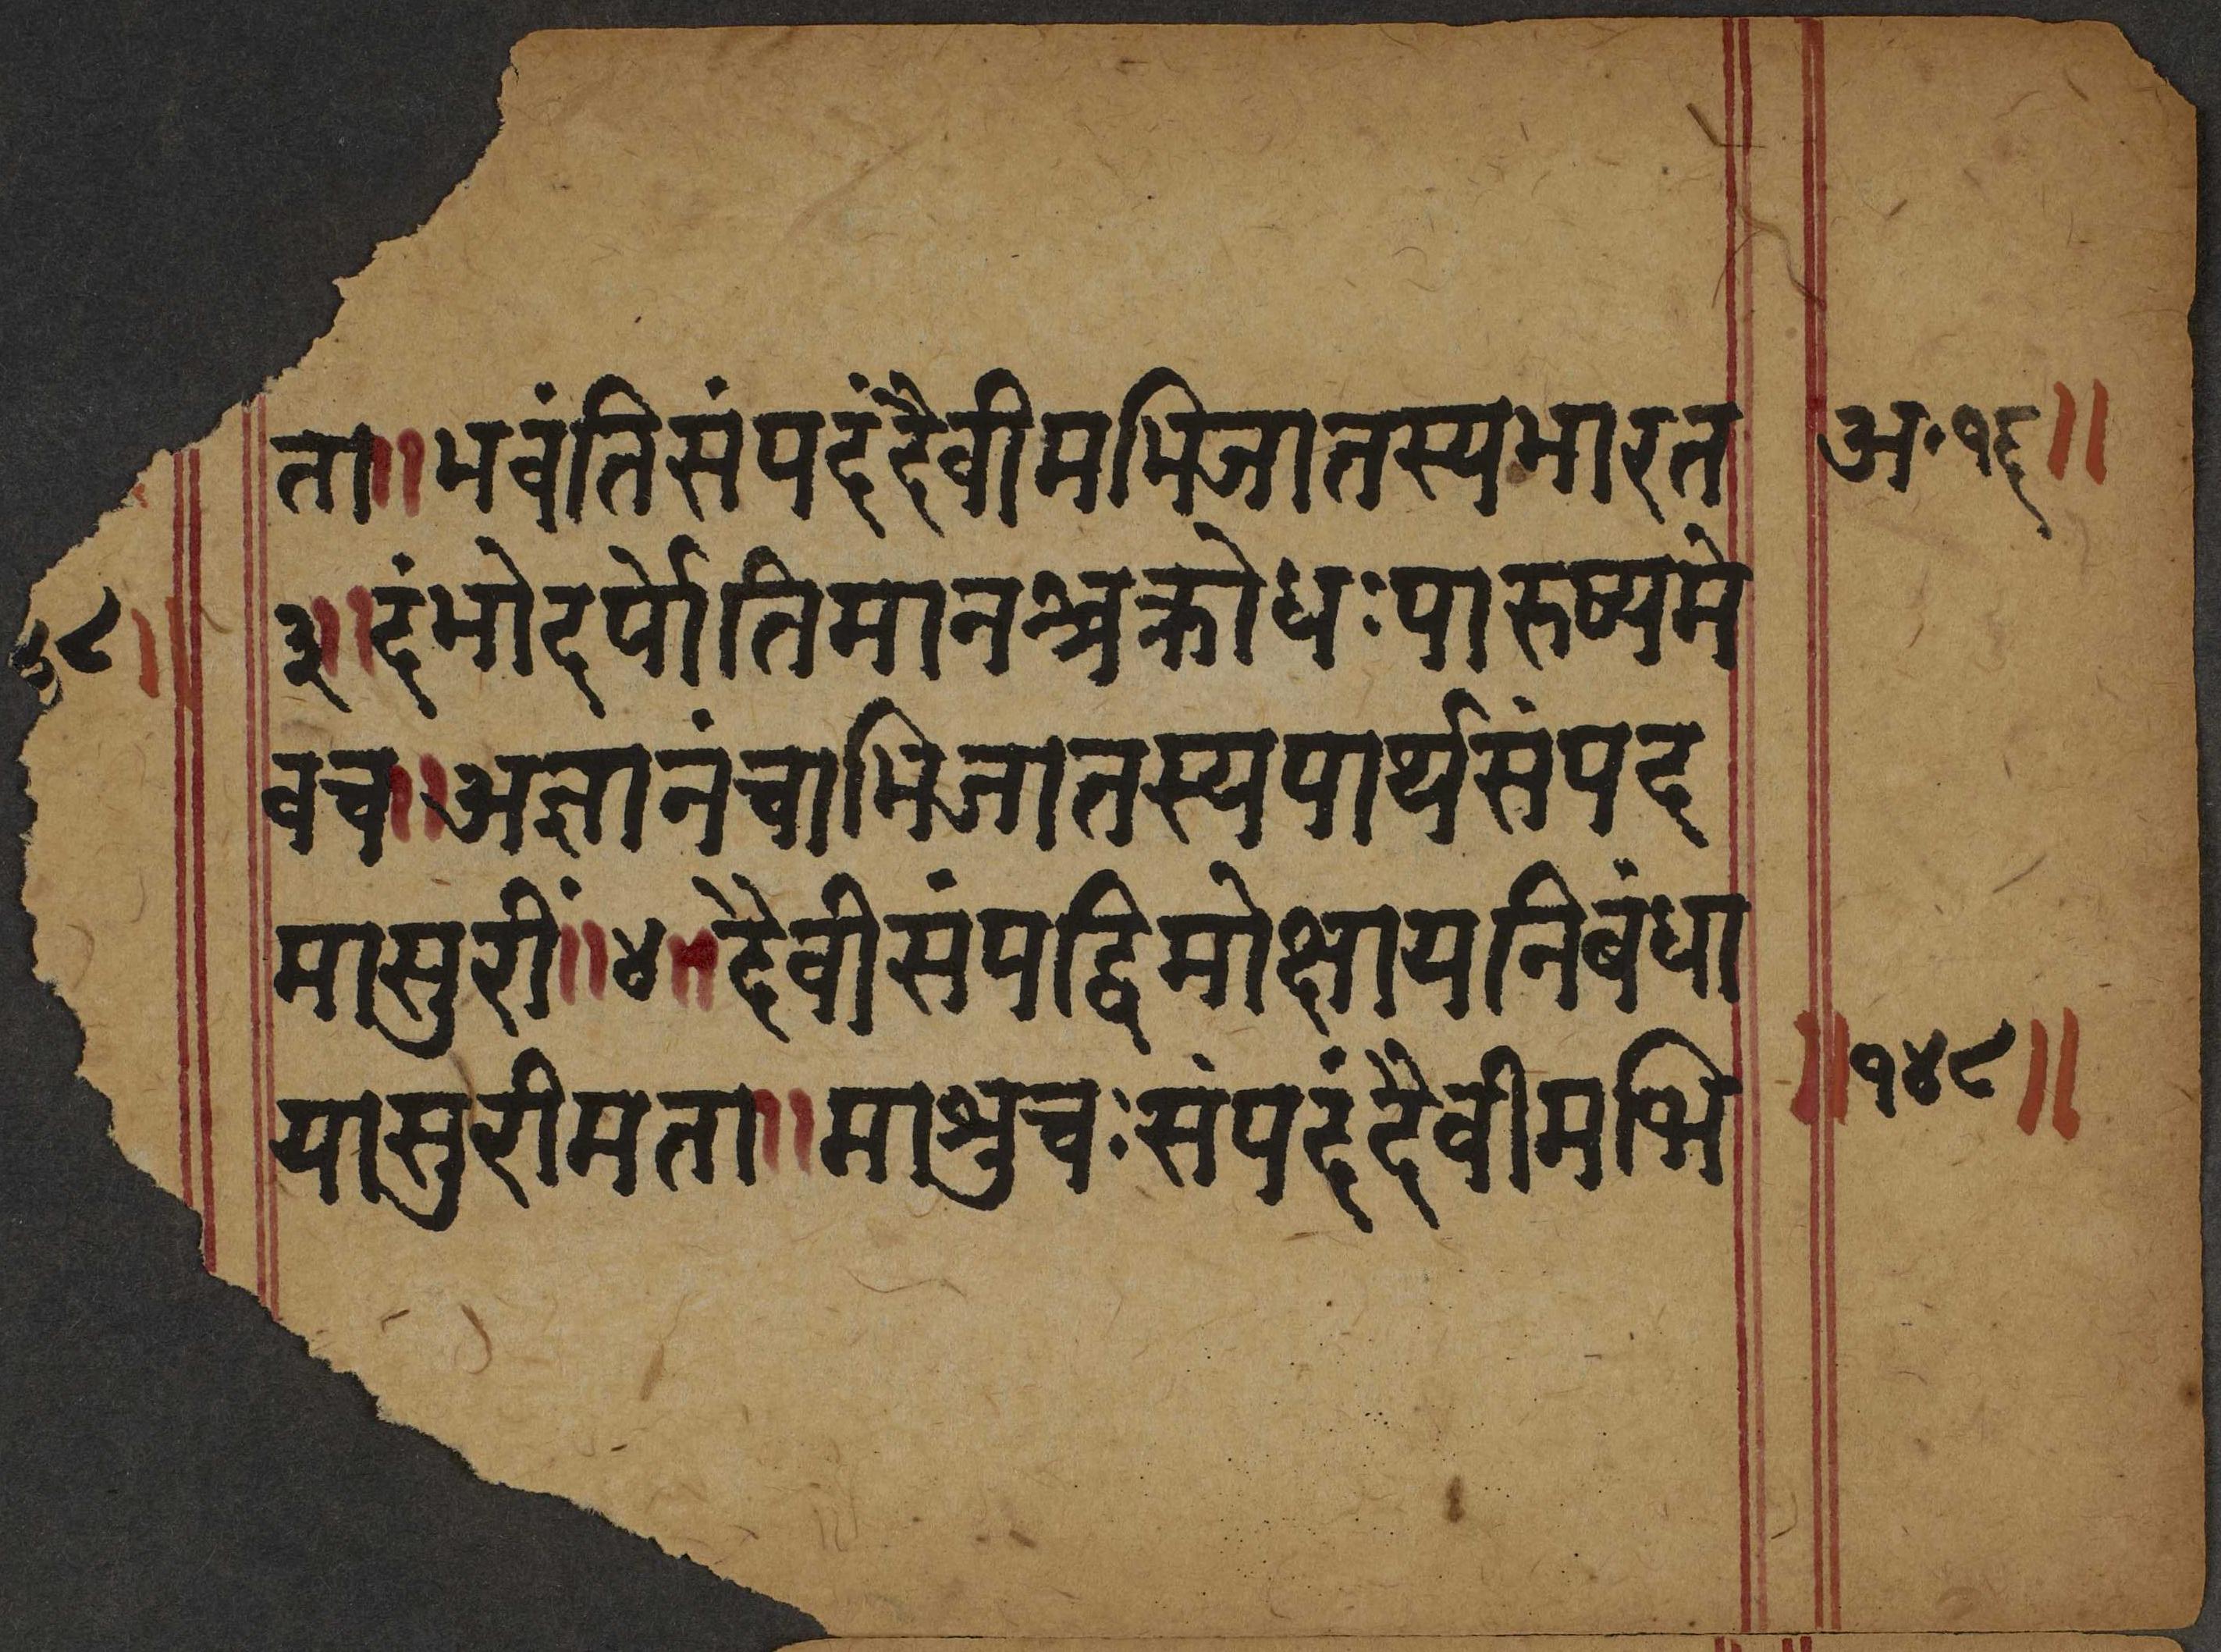 ता॥भवंतिसंपदंदैवीमभिजातस्यभारत
३॥दंभोदर्पोतिमानश्चक्रोधःपारुष्यमे
वच॥अज्ञानंचाभिजातस्यपार्थसंपद
मासुरीं॥४॥दैवीसंपद्विमोक्षायनिबंधा
यासुरीमता॥माशुचःसंपदंदैवीमभि
अ॰१६॥
॥१४८॥